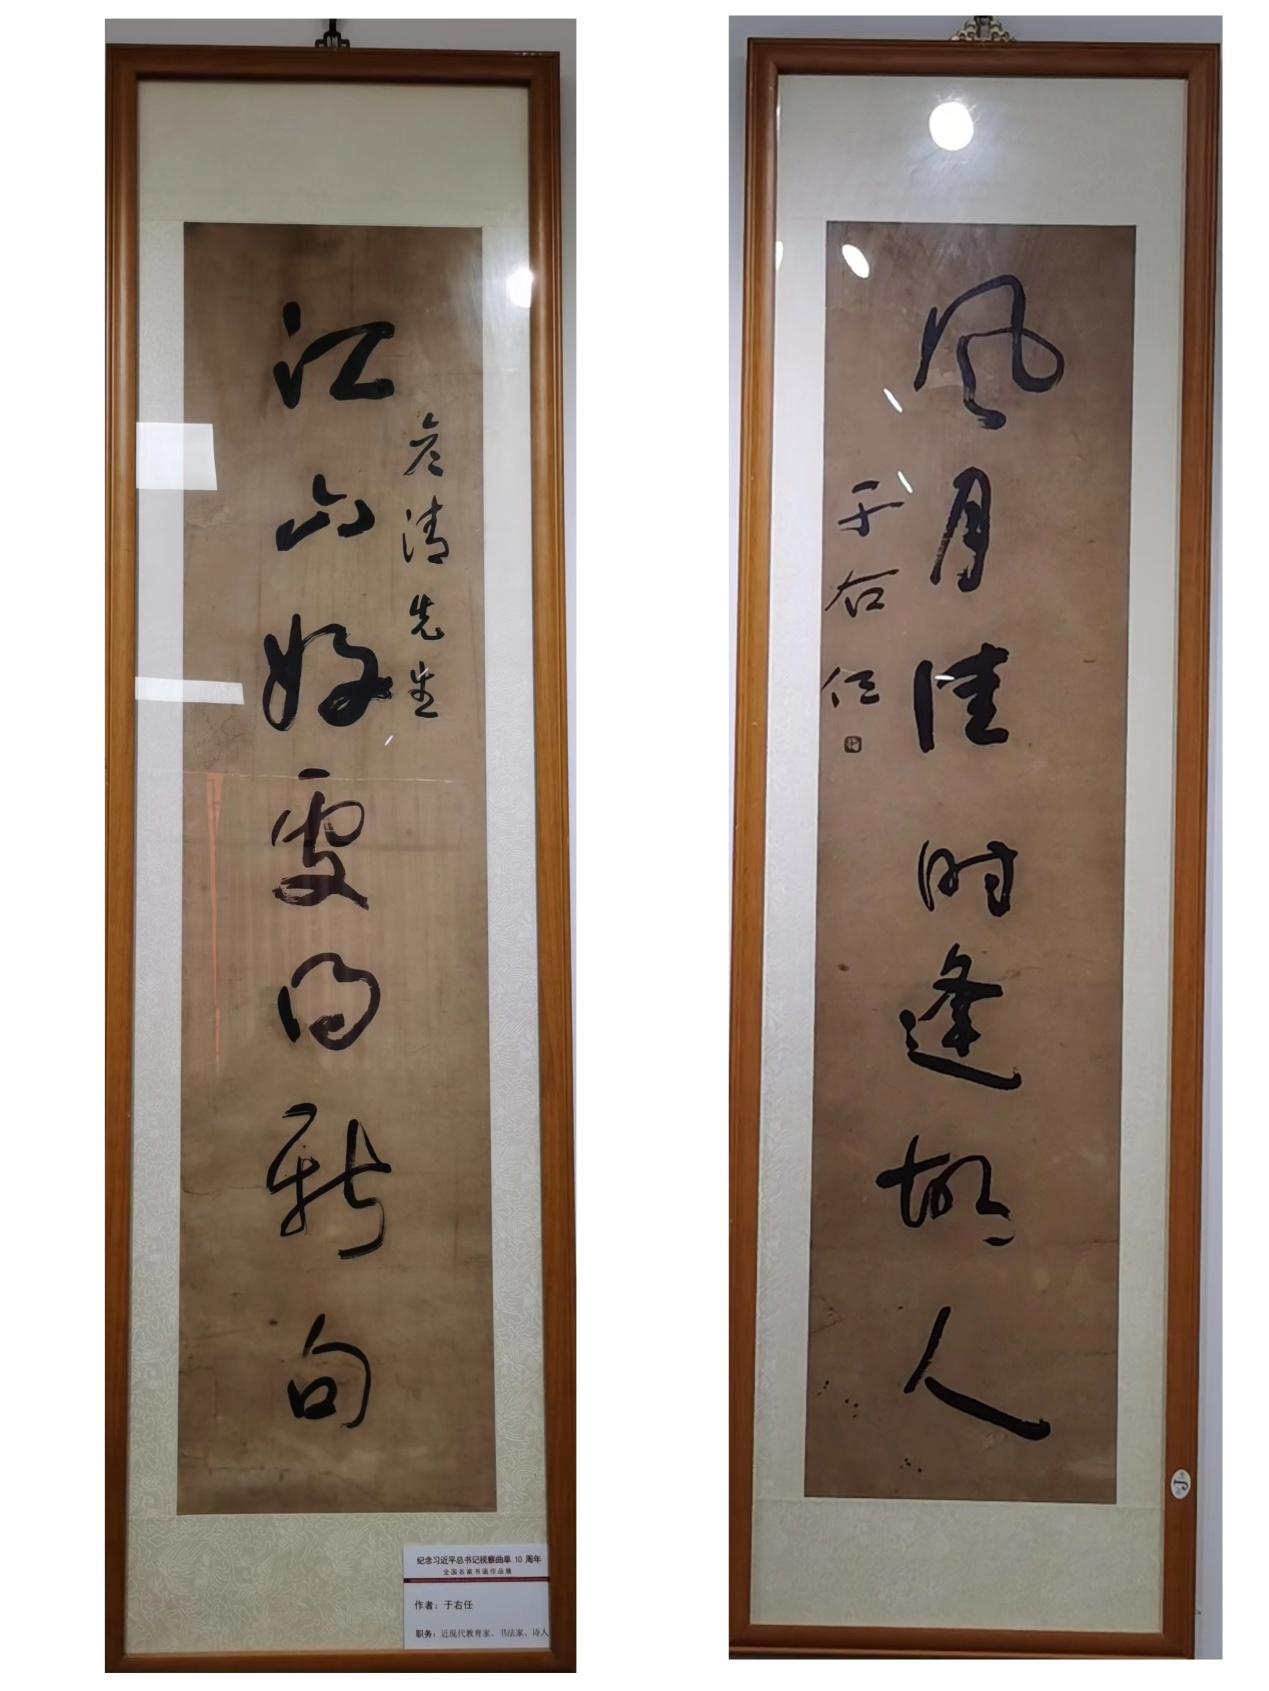 彦清先生
江山好處得新句
紀念习近平总书记视察曲阜 10 周年
全国名家书画作品展
作者：于右任
职务：近现代教育家、书法家、诗人
風月佳時逢故人
于右任